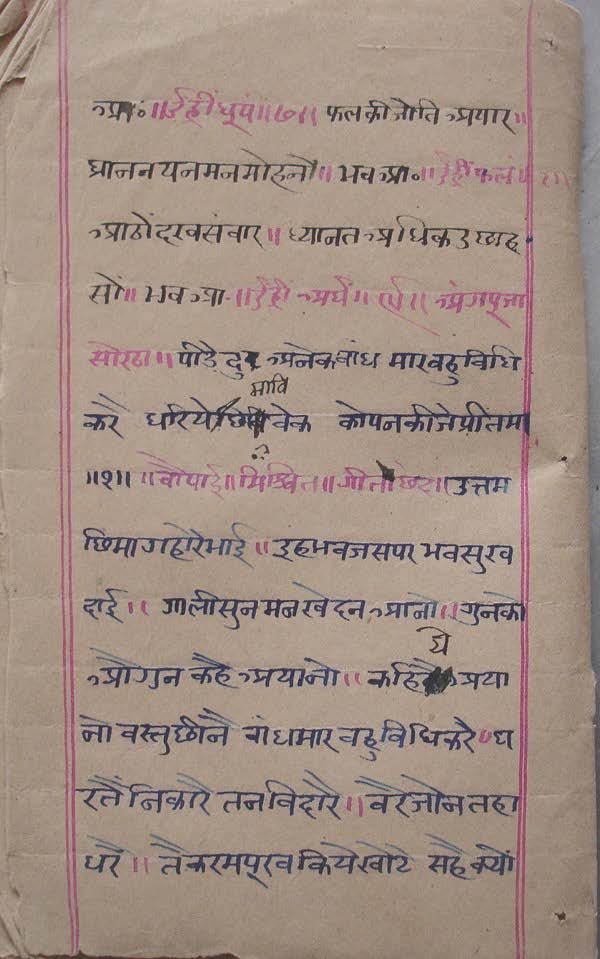 आ॰ ॥ उंह्रीं धूपं ॥७॥ फलकीजोति अपार ॥
घ्राननयनमनमोहनौ ॥ भवआ॰ ॥ उंह्रीं फलं
आठोंदरवसंवार ॥ ध्यानत अधिकउछाह
सों ॥ भवआ ॥ उंह्रीं अर्घं ॥९॥ अंगपूजा
सोरठा ॥ पीडैदु अनेक बांध मारबहुविधि
मावि
करै धरियेछिवेक कोपनकीजेप्रीतमा
॥१॥ चौपाई ॥ मिश्रित ॥ गीताछंद ॥ उत्तम
छिमागहोरेभाई ॥ इहभवजसपरभवसुख
दाई ॥ गालीसुनमनखेदनआनो ॥ गुनको
औगुन कहै अयानो ॥ कहिहै अया
नो वस्तुछीनै बांधमारबहुविधिकरै घ
रतैंनिकारै तनविदारै ॥ वैरजोनतहा
धरै ॥ तैकरमपूरबकियेखोटे सहैक्यौं